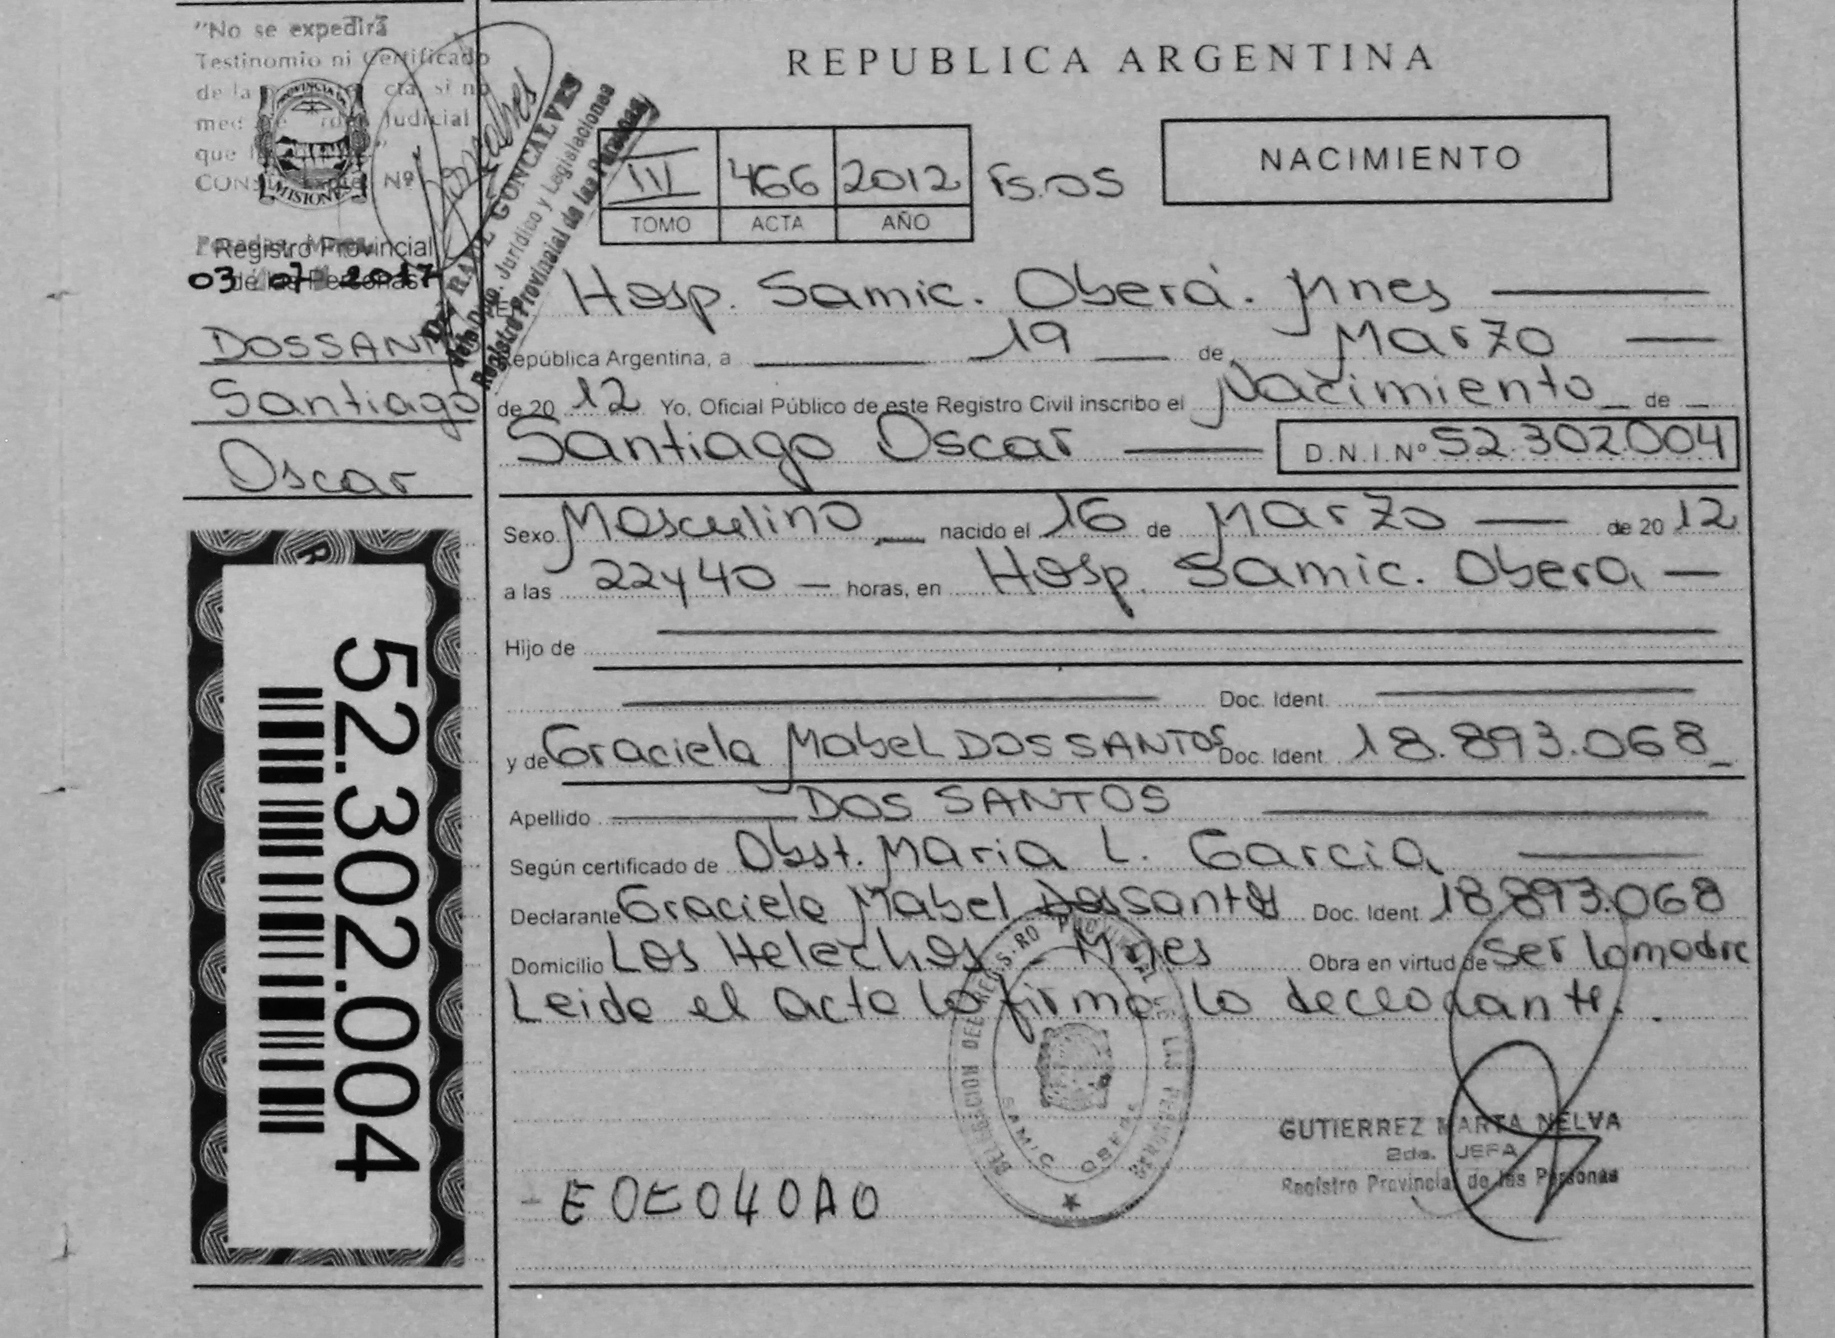 "No se expedirá
Testinomio ni Certificado
de la cta, si no
med Judicial
que
CONS Nº
PROVINCIA DE
MISIONES
Registro Provincial
de las Personas
03 07 2017
DOSSANT
Santiago
Oscar
52.302.004
RAUL GONCALVES
Dpto. Jurídico y Legislaciones
Registro Provincial de las Personas
REPUBLICA ARGENTINA
III 466 2012 Fs.05
TOMO ACTA AÑO
NACIMIENTO
En Hosp. Samic. Oberá. Mnes
República Argentina, a 19 de Marzo
de 20 12 Yo, Oficial Público de este Registro Civil inscribo el Nacimiento de
Santiago Oscar D.N.I.Nº 52.302.004
Sexo Masculino nacido el 16 de Marzo de 20 12
a las 22y40 horas, en Hosp. Samic. Obera
Hijo de
Doc. Ident.
y de Graciela Mabel DOS SANTOS Doc. Ident. 18.893.068
Apellido DOS SANTOS
Según certificado de Obst. Maria L. Garcia
Declarante Graciela Mabel Dossantos Doc. Ident 18.893.068
Domicilio Los Helechos - Mnes Obra en virtud de ser la madre
Leida el acta la firma la declarante.
SAMIC OBERA
GUTIERREZ MARTA NELVA
2da. JEFA
Registro Provincial de las Personas
- E0E040A0